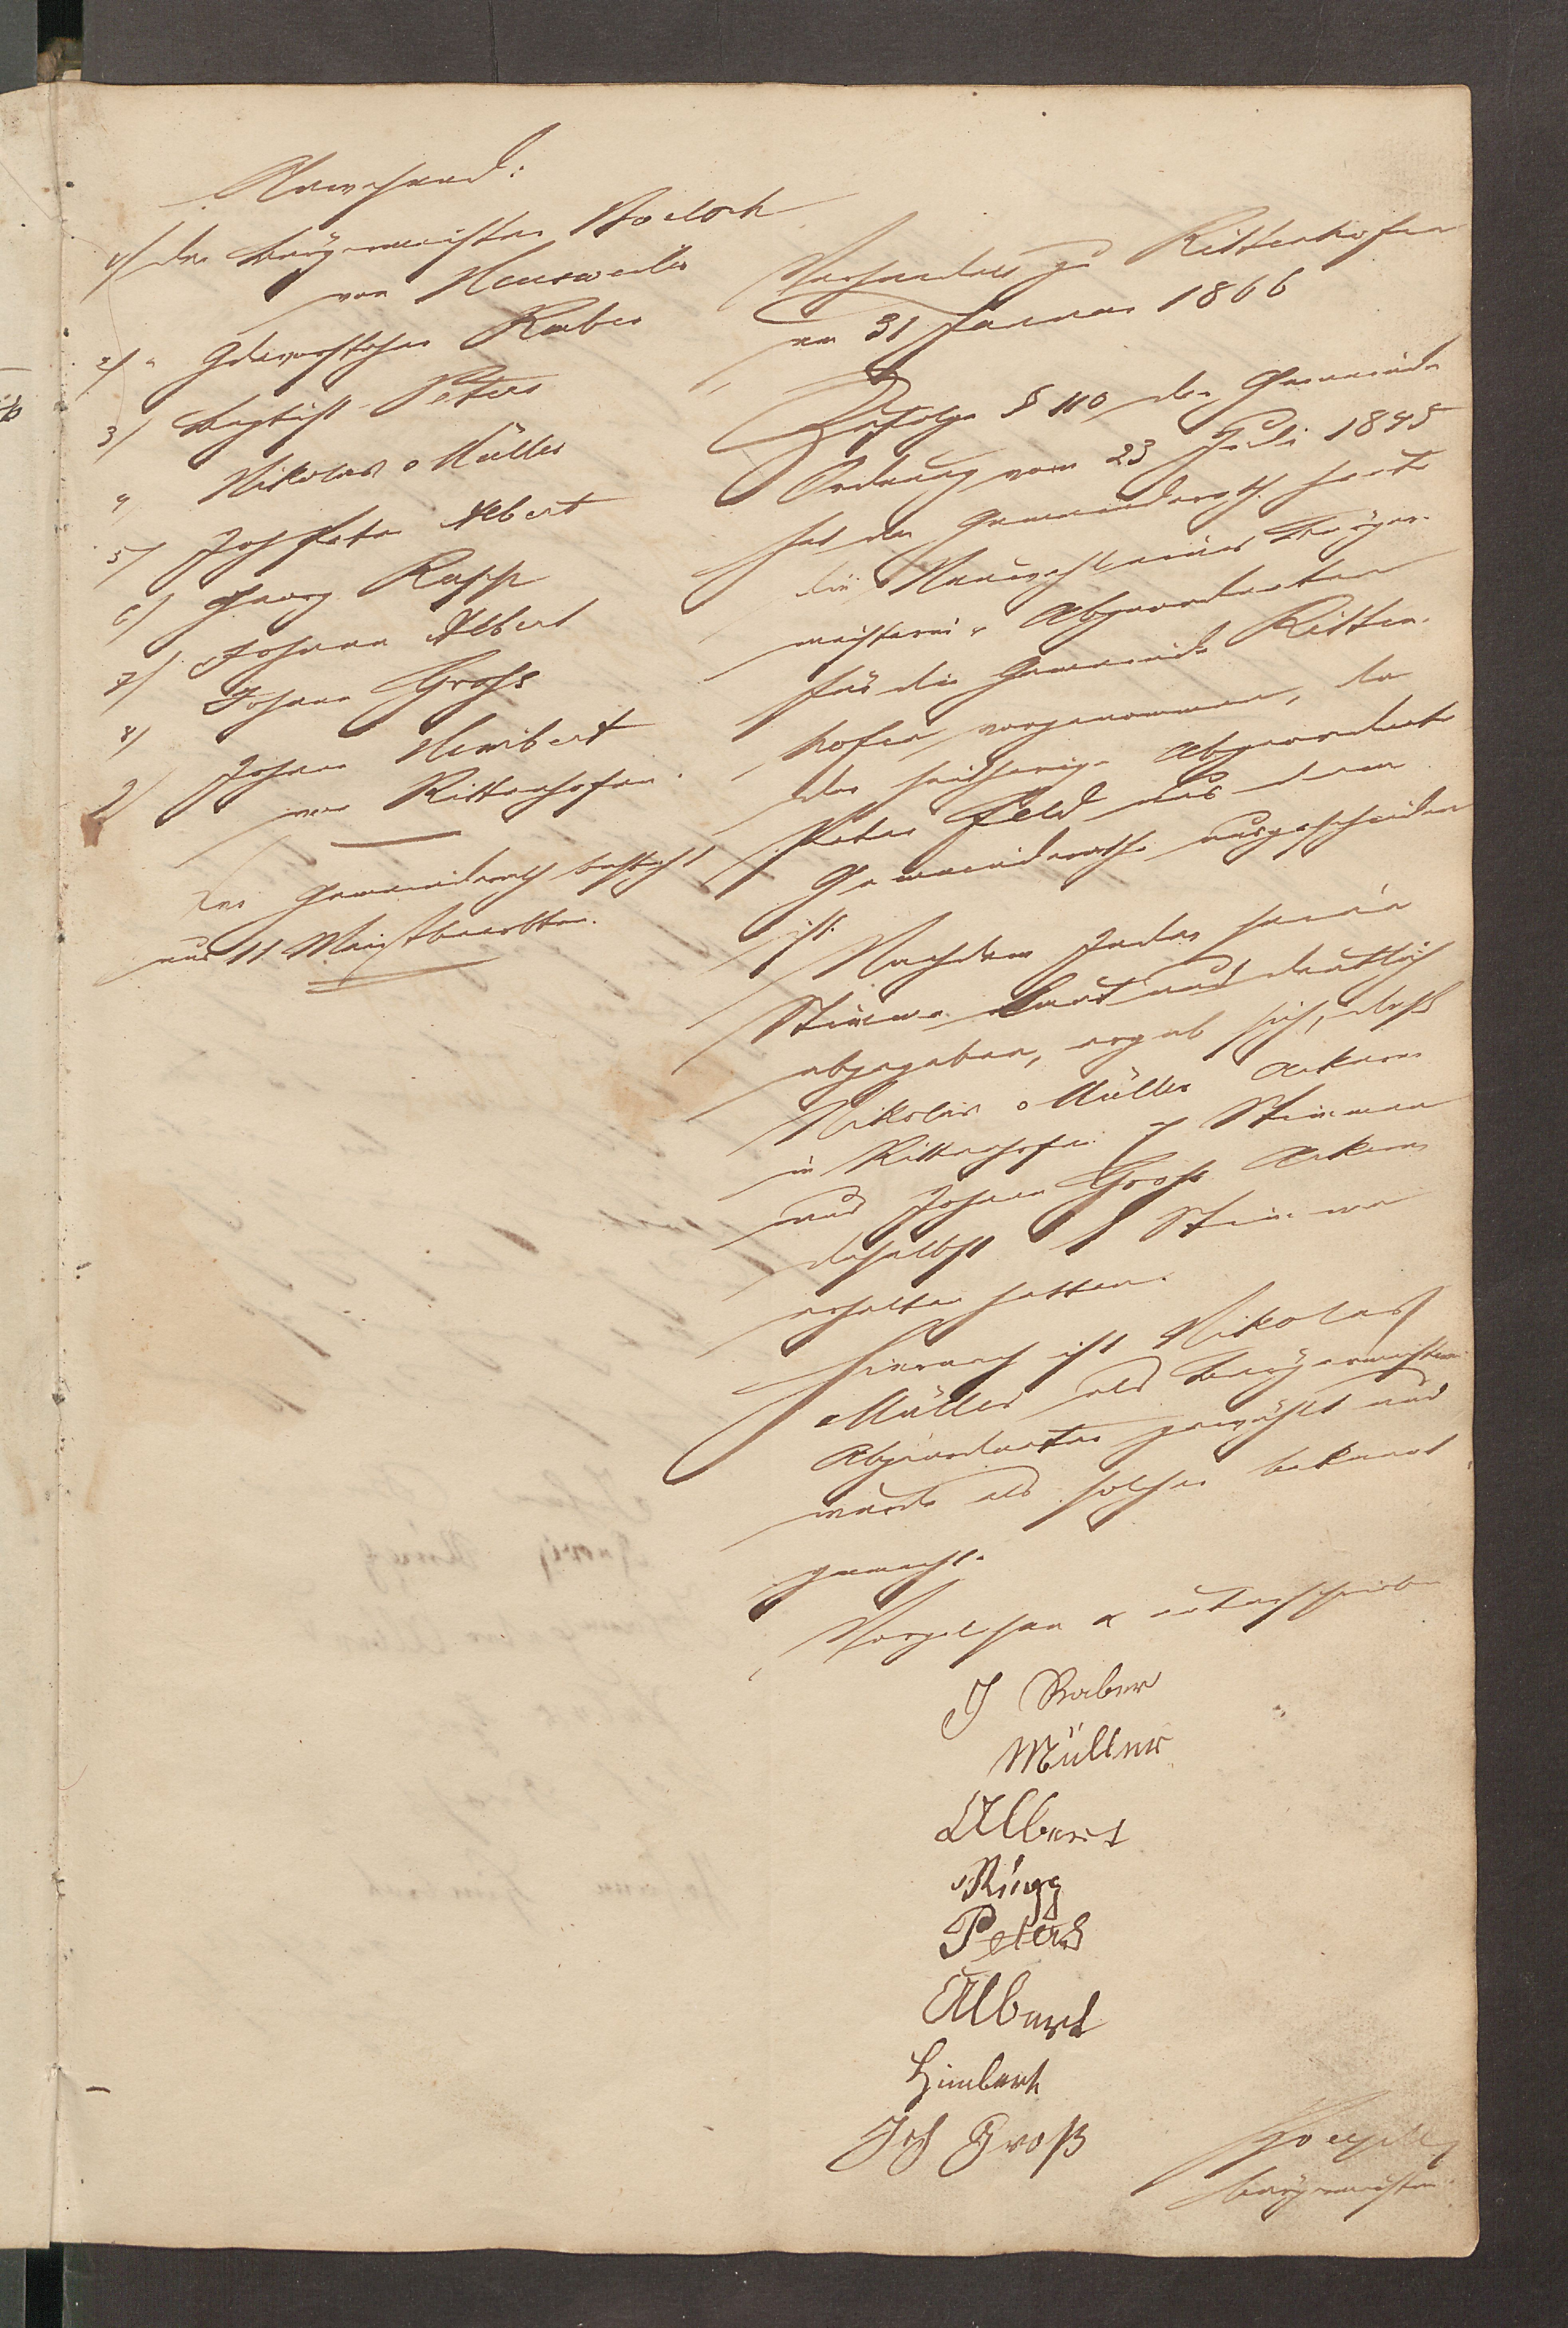 Anwesend:
1) der Bürgermeister
von Heusweiler
2) " Gdevorsteher Raber
3) Baptist Peter
4 Nikolaus Müller
5) Joh Peter Albert
6) Georg Rupp
7) Johann Albert
8) Johann Groß
9) Johann Himbert
von Rittenhofen.
Der Gemeinderath besteht
aus 11 Meistbeerbten.
Verhandelt zu Rittenhofen
am 31 Januar 1866
Zufolge § 110 der Gemeinde
Ordnung vom 23 Juli 1845
hat der Gemeinderath heute
die Neuwahl eines Bürger-
meisterei-Abgeordneten
für die Gemeinde Ritten-
hofen vorgenommen, da
der seitherige Abgeordnete
Peter Feld aus dem
Gemeinderathe ausgeschieden
ist.
Nachdem Jeder seine
Stimme laut und deutlich
abgegeben, ergab sich, daß
Nikolaus Müller Ackerer
in Rittenhofen 7 Stimmen
und Johann Groß Ackerer
daselbst 1 Stimme
erhalten hatten.
Hiernach ist Nikolaus
Müller als Bürgermeisterei
Abgeordneter gewählt und
wurde als solcher bekannt
gemacht.
Vorgelesen & unterschrieben
J Raber
Müller
Albert
Rupp
Peter
Albert
Himbert
Joh Groß
Bürgermeister